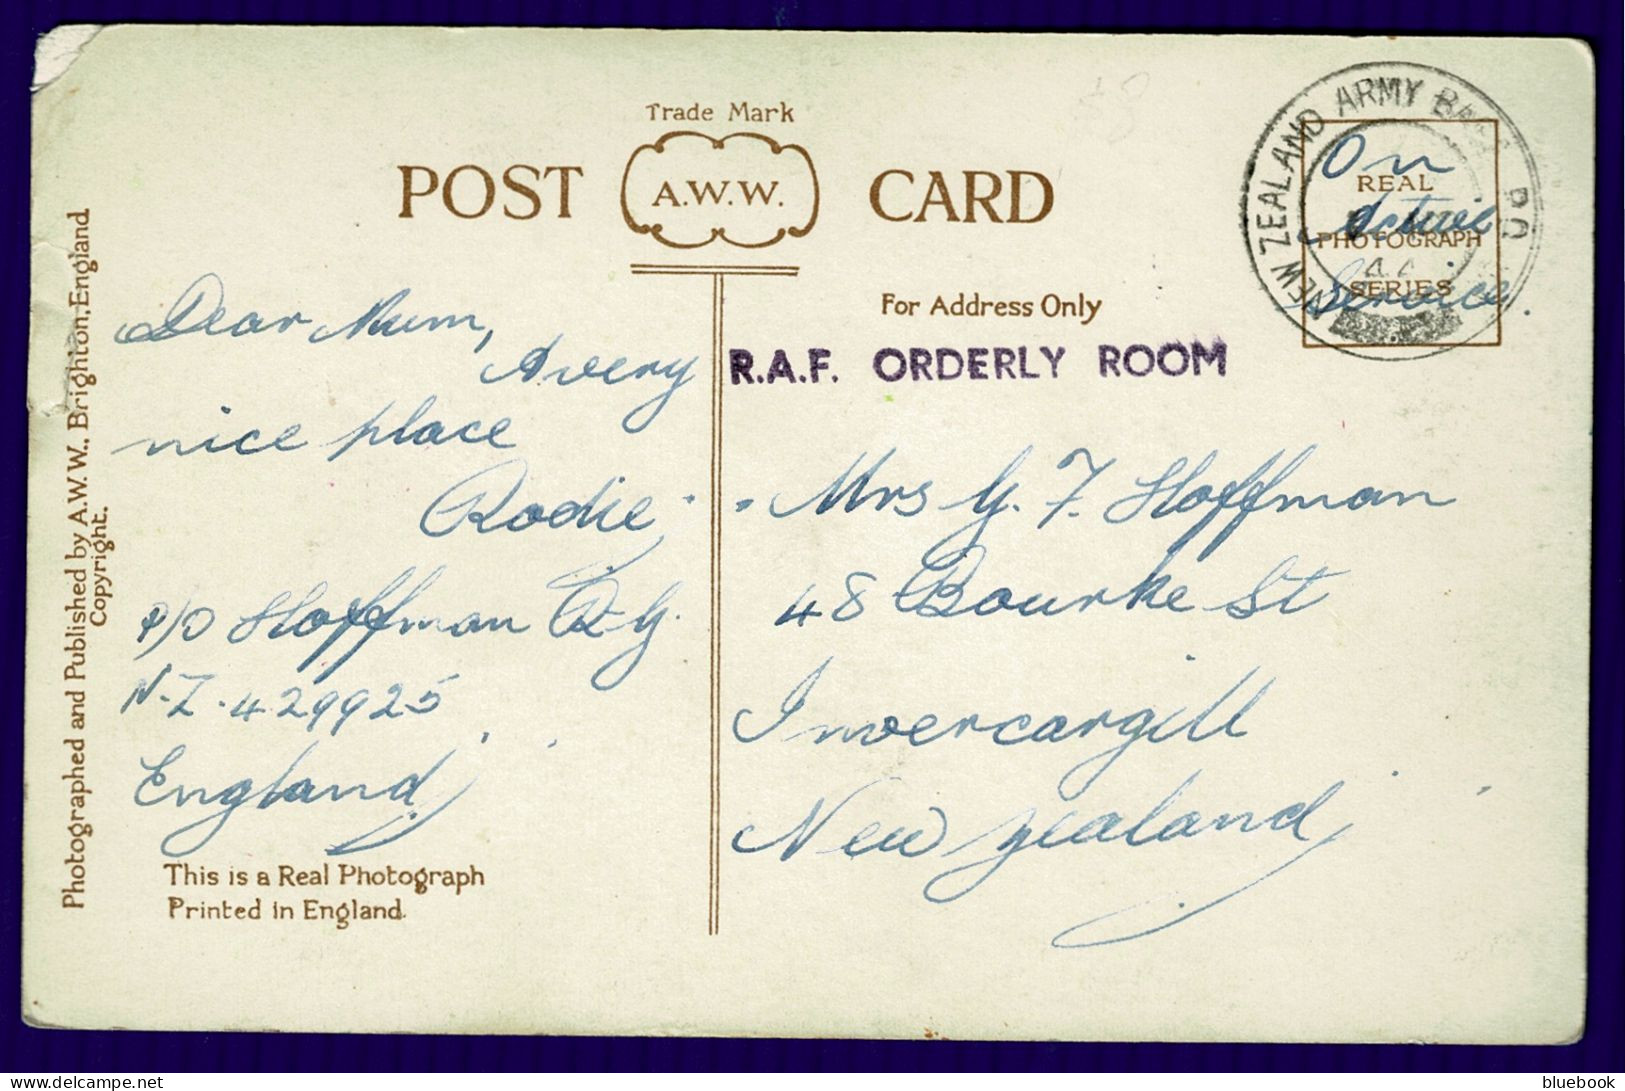 Trade Mark
POST A.W.W. CARD
NEW ZEALAND ARMY BASE P.O.
REAL
PHOTOGRAPH
SERIES
On
Active
Service.
For Address Only
R.A.F. ORDERLY ROOM
Dear Mum,
A very
nice place
Rodie
P/O Hoffman R.G.
N.Z. 429925
England
This is a Real Photograph
Printed in England.
Mrs G. F. Hoffman
48 Bourke St
Invercargill
New Zealand
Photographed and Published by A.W.W., Brighton, England
Copyright.
bluebook
delcampe.net